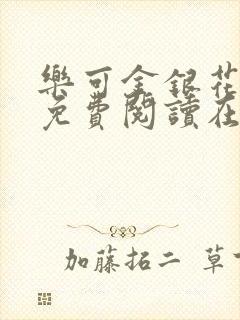 樂可金銀花
免費閱讀在
加藤拓二 草